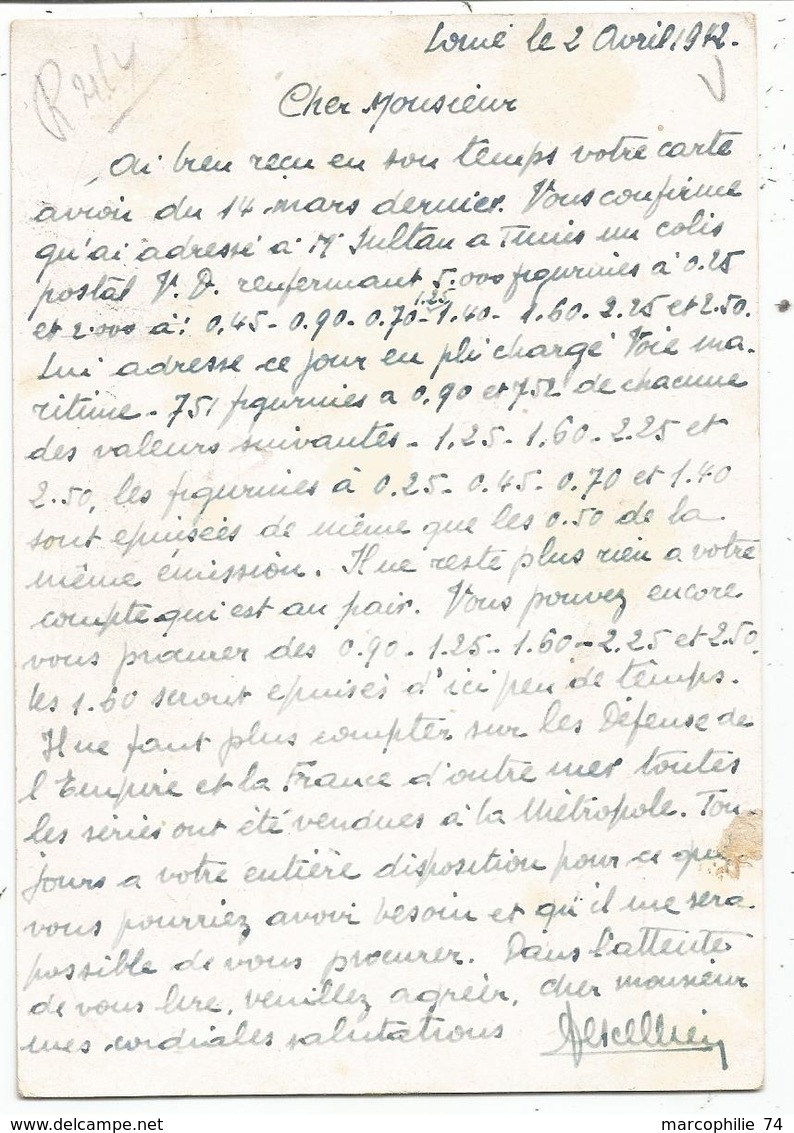 Lomé le 2 Avril 1942.
R 21/4
Cher Monsieur
Ai bien reçu en son temps votre carte
avion du 14 mars dernier. Vous confirme
qu'ai adressé à Mr Sultan a Tunis un colis
postal V.D. renfermant 5.000 figurines à 0.25
1.25
et 2.000 à: 0.45 - 0.90 - 0.70 - 1.40 - 1.60 - 2.25 et 2.50.
Lui adresse ce jour en pli chargé Voie ma-
ritime - 751 figurines a 0.90 et 752 de chacune
des valeurs suivantes - 1.25 - 1.60 - 2.25 et
2.50, les figurines à 0.25 - 0.45 - 0.70 et 1.40
sont épuisées de même que les 0.50 de la
même émission. Il ne reste plus rien a votre
compte qui est au pair. Vous pouvez encore
vous procurer des 0.90 - 1.25 - 1.60 - 2.25 et 2.50.
les 1.60 seront epuisés d'ici peu de temps.
Il ne faut plus compter sur les Défense de
l'Empire et la France d'outre mer toutes
les séries ont été vendues à la Métropole. Tou-
jours a votre entière disposition pour ce que
vous pourriez avoir besoin et qu'il me sera
possible de vous procurer. Dans l'attente
de vous lire, veuillez agréér, cher monsieur
mes cordiales salutations
marcophilie 74